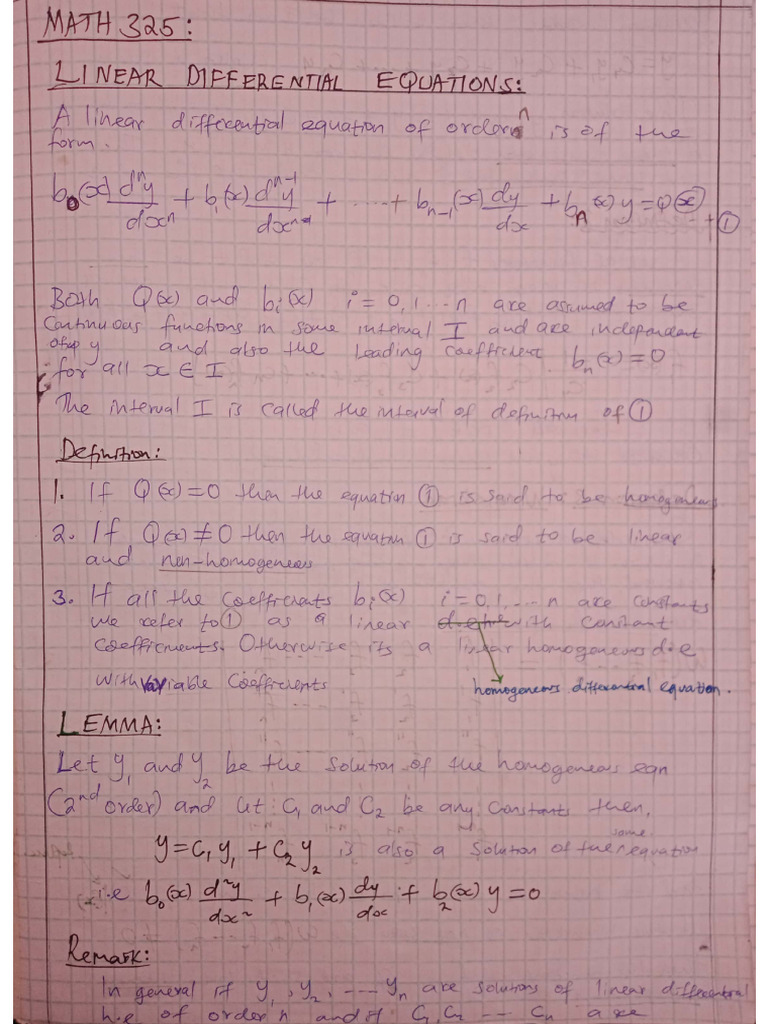 MATH 325:
LINEAR DIFFERENTIAL EQUATIONS:
A linear differential equation of order n is of the
form.
b₀(x) dⁿy/dxⁿ + b₁(x) dⁿ⁻¹y/dxⁿ⁻¹ + ... + bₙ₋₁(x) dy/dx + bₙ(x) y = Q(x) ①
Both Q(x) and bᵢ(x) i = 0, 1 ... n are assumed to be
Continuous functions in some interval I and are independent
of y and also the leading coefficient bₙ(x) = 0
for all x ∈ I
The interval I is called the interval of definition of ①
Definition:
1. If Q(x) = 0 then the equation ① is said to be homogeneous
2. If Q(x) ≠ 0 then the equation ① is said to be linear
and non-homogeneous
3. If all the coefficients bᵢ(x) i = 0, 1, ... n are constants
we refer to ① as a linear with constant
coefficients. Otherwise its a linear homogeneous d.e
with variable coefficients
homogeneous differential equation.
LEMMA:
Let y₁ and y₂ be the solution of the homogeneous eqn
(2nd order) and let C₁ and C₂ be any constants then,
some
y = C₁y₁ + C₂y₂ is also a solution of the equation
i.e b₀(x) d²y/dx² + b₁(x) dy/dx + b₂(x) y = 0
Remark:
In general if y₁, y₂, ---- yₙ are solutions of linear differential
h.e of order n and if C₁, C₂ --- Cₙ are